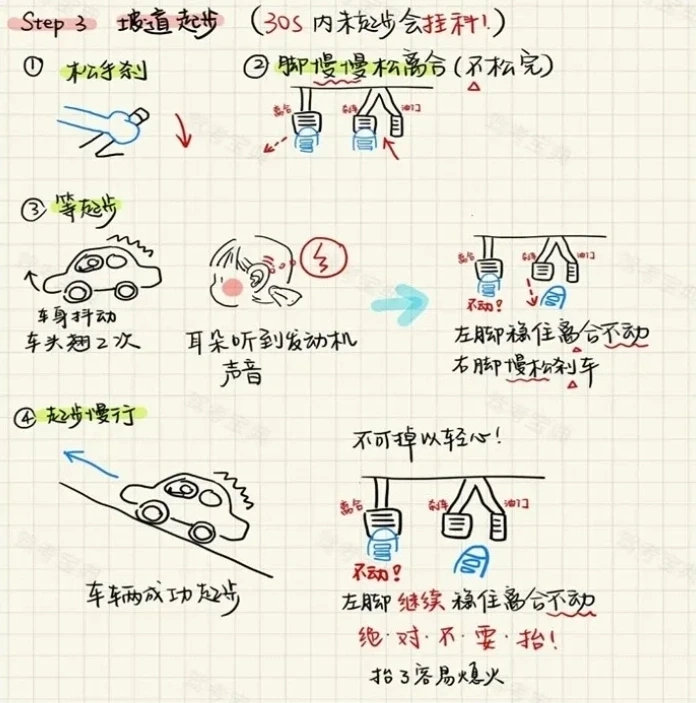 Step 3 坡道起步 (30S内未起步会挂科!)
① 松手刹
② 脚慢慢松离合(不松完)
离合 刹车 油门
③ 等起步
车身抖动
车头翘2次
耳朵听到发动机
声音
离合 刹车 油门
不动!
左脚稳住离合不动
右脚慢松刹车
④ 起步慢行
车车辆成功起步
不可掉以轻心!
离合 刹车 油门
不动!
左脚继续稳住离合不动
绝·对·不·要·抬!
抬了容易熄火